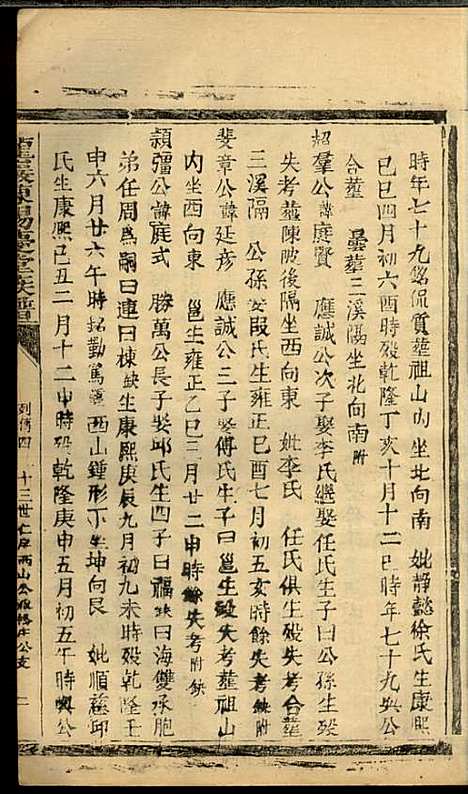 時年七十九銘侃質葬祖山内坐北向南 妣静懿徐氏生康熙
己巳四月初六酉時殁乾隆丁亥十月十二巳時年七十九與公
合葬 曇葬三溪隔坐北向南附
紹羣公諱庭賢 應誠公次子娶李氏繼娶任氏生子曰公孫生殁
失考葬陳陂後隔坐西向東 妣李氏 任氏俱生殁失考合葬
三溪隔 公孫 娶段氏生雍正己酉七月初五亥時餘失考附缺
斐章公諱延彦 應誠公三子娶傅氏生子曰邕生殁失考葬祖山
内坐西向東 邕生雍正乙巳三月廿二申時餘失考附缺
頴彊公諱庭式 勝萬公長子娶邱氏生四子曰福缺曰海雙承胞
弟任周爲嗣曰連曰棟缺生康熙庚辰九月初九未時殁乾隆壬
申六月廿六午時銘勤篤葬西山鍾形丁坐坤向艮 妣順慈邱
氏生康熙己丑二月十二申時殁乾隆庚申五月初五午時與公
列傳四 十三世仁房西山公派 公支